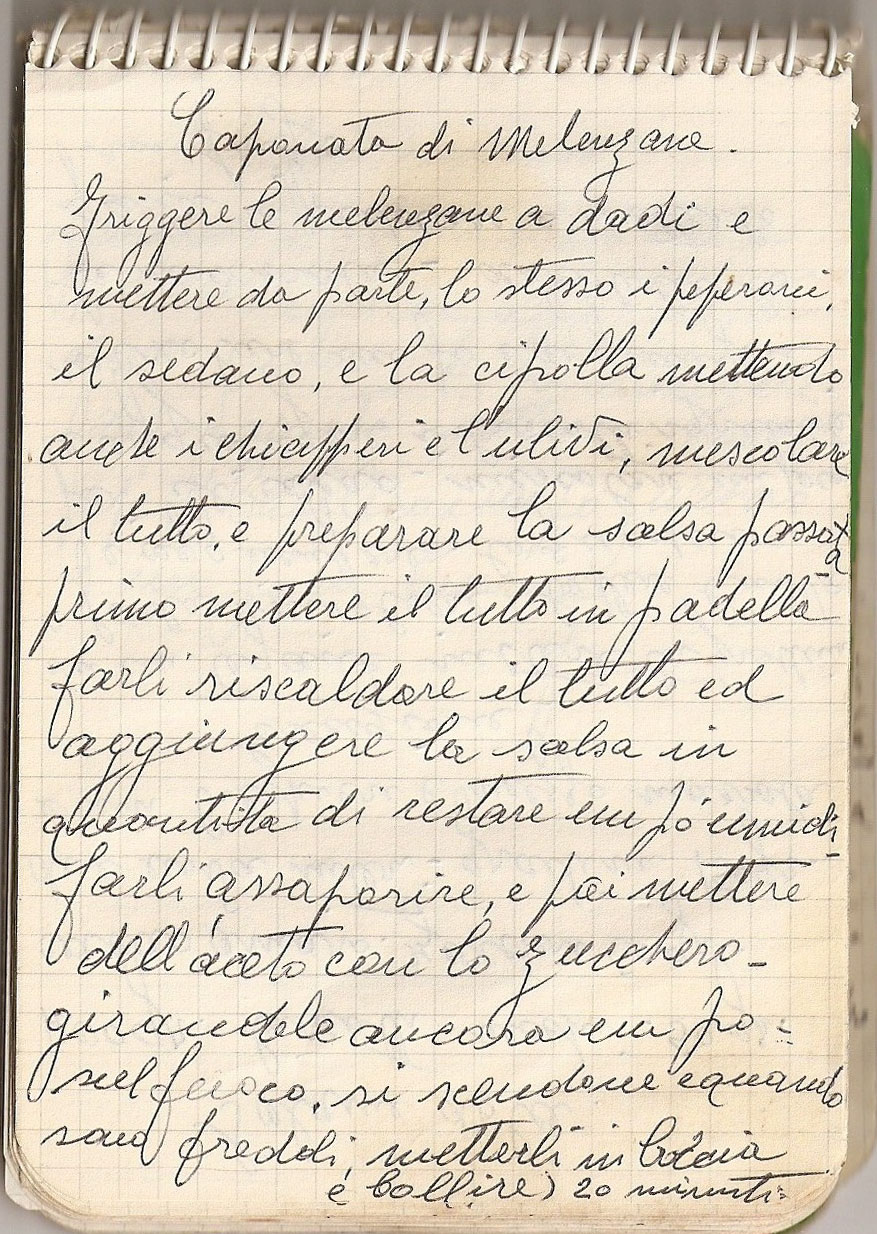 Caponata di Melenzane.
Friggere le melenzane a dadi e
mettere da parte, lo stesso i peperoni,
il sedano, e la cipolla mettendo
anche i chiapperi e l'ulivi, mescolare
il tutto, e preparare la salsa passata
primo mettere il tutto in padella
farli riscaldare il tutto ed
aggiungere la salsa in
quantità di restare un pò umidi-
farli assaporire, e poi mettere
dell'aceto con lo zucchero-
girandole ancora un po-
sul fuoco, si scendone e quando
sono freddi, metterli in boccia
e bollire) 20 minuti-